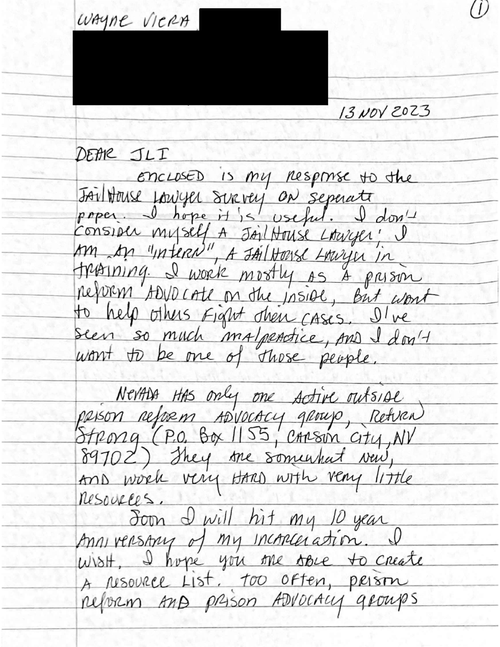 ①
WAYNE VIERA
13 NOV 2023
DEAR JLI
ENCLOSED is my Response to the
JAilHouse LAwyer SURVEY ON Seperate
pAper. I hope it is useful. I don't
Consider myself A JAilHouse LAwyer! I
Am An "intern", A JAilHouse LAwyer in
tRAining. I work mostly AS A pRison
Reform ADVOCAte on the inside, But wAnt
to help others Fight their CASes. I've
seen so much mAlpRActice, AND I don't
wAnt to be one of those people.
NeVADA HAS only one Active outside
pRison Reform ADVOCACy group, Return
Strong (P.O. Box 1155, CARSON City, NV
89702) They ARe somewhAt New,
AND work veRy HARD with veRy little
Resources.
Soon I will hit my 10 year
ANNIVERSARy of my INCARCERAtion. I
wish, I hope you ARe ABle to CreAte
A Resource List. Too often, prison
Reform AND pRison ADVOCACy gRoups